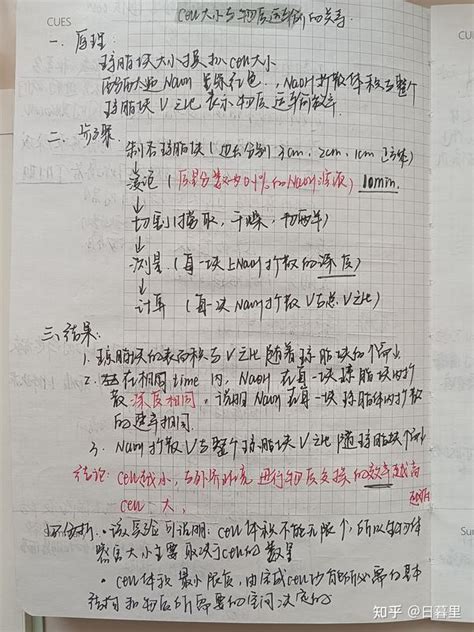 CUES
cell大小与物质运输的关系
一、原理:
琼脂块大小模拟cell大小
酚酞遇NaOH呈紫红色…, NaOH扩散体积与整个
琼脂块V之比表示物质运输效率.
二、步骤
制备琼脂块(边长分别3cm、2cm、1cm正方体)
浸泡(质量分数为0.1%的NaOH溶液) 10min.
↓
切割(捞取,干燥,切两半)
↓
测量(每一块上NaOH扩散的深度)
↓
计算(每一块NaOH扩散V与总V之比)
三、结果:
1. 琼脂块的表面积与V之比随着琼脂块的↑而↓
2. 在相同time内, NaOH在每一块琼脂块内扩
散深度相同,说明NaOH在每一块琼脂块内扩散
的速率相同.
3. NaOH扩散V与整个琼脂块V之比随琼脂块↑而↓
结论: cell越小,与外界环境进行物质交换的效率越高
cell 大,
·该实验可说明: cell体积不能无限↑,所以生物体
器官大小主要取决于cell的数量
·cell体积最小限度,由完成cell功能所必需的基本
结构和物质所需要的空间决定的
知乎 @日暮里